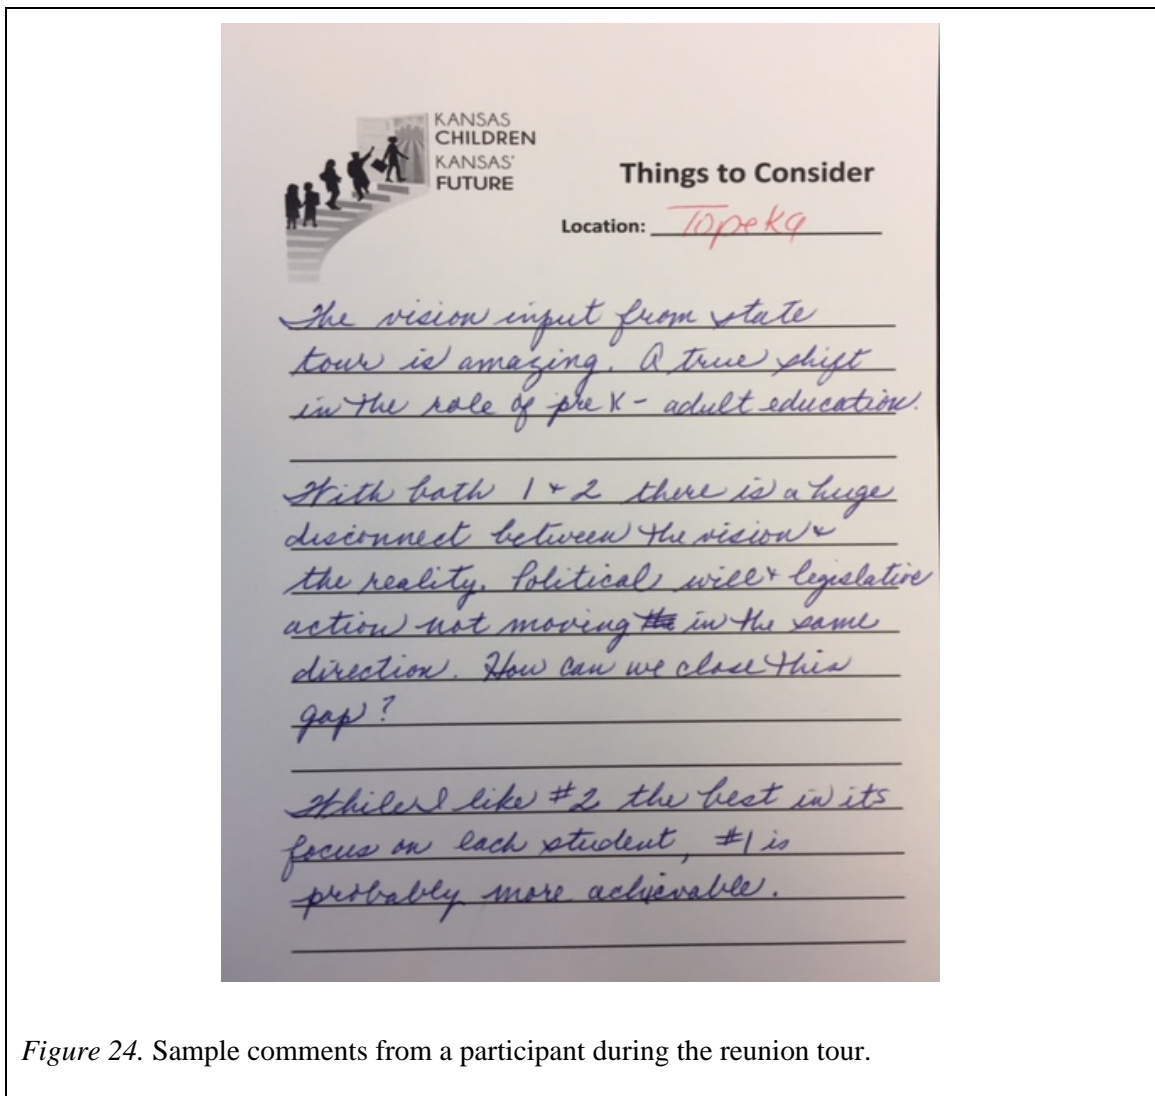 KANSAS
CHILDREN
KANSAS'
FUTURE
Things to Consider
Location: Topeka
The vision input from state
tour is amazing. A true shift
in the role of pre K - adult education.
With both 1 + 2 there is a huge
disconnect between the vision +
the reality. Political will + legislative
action not moving the in the same
direction. How can we close this
gap?
While I like #2 the best in its
focus on each student, #1 is
probably more achievable.
Figure 24. Sample comments from a participant during the reunion tour.